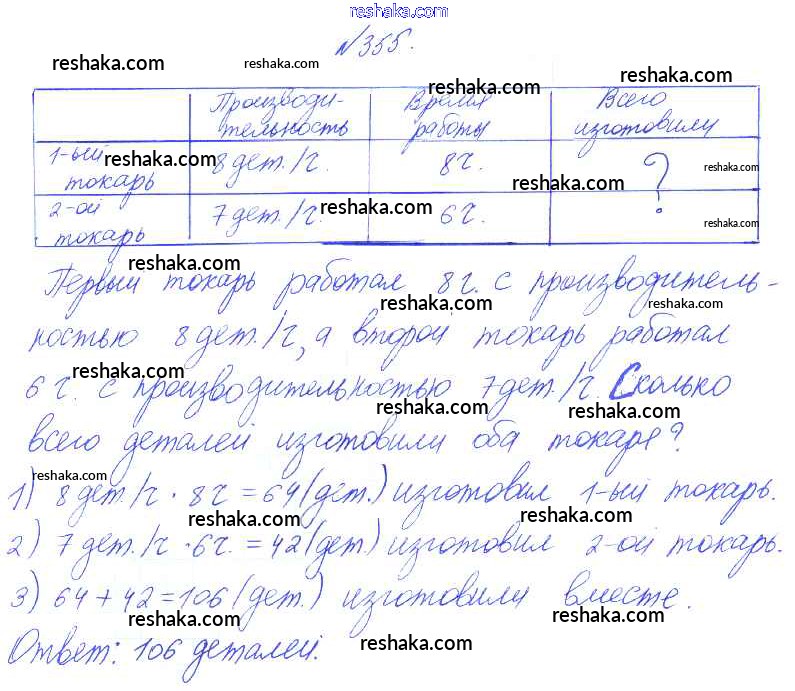 reshaka.com
№355.
reshaka.com reshaka.com reshaka.com
Производи- Время Всего
тельность работы изготовили
1-ый reshaka.com 8 дет./ч. 8ч. ? reshaka.com
токарь reshaka.com
2-ой 7 дет./ч. reshaka.com 6ч. reshaka.com
токарь
reshaka.com
Первый токарь работал 8 ч. с производитель-
reshaka.com reshaka.com
ностью 8 дет./ч, а второй токарь работал
reshaka.com
6 ч. с производительностью 7 дет./ч. Сколько
reshaka.com reshaka.com
всего деталей изготовили оба токаря?
reshaka.com
1) 8 дет./ч · 8ч = 64 (дет.) изготовил 1-ый токарь.
reshaka.com reshaka.com
2) 7 дет./ч · 6ч. = 42 (дет) изготовил 2-ой токарь.
3) 64 + 42 = 106 (дет.) изготовили вместе.
reshaka.com reshaka.com
Ответ: 106 деталей.
reshaka.com